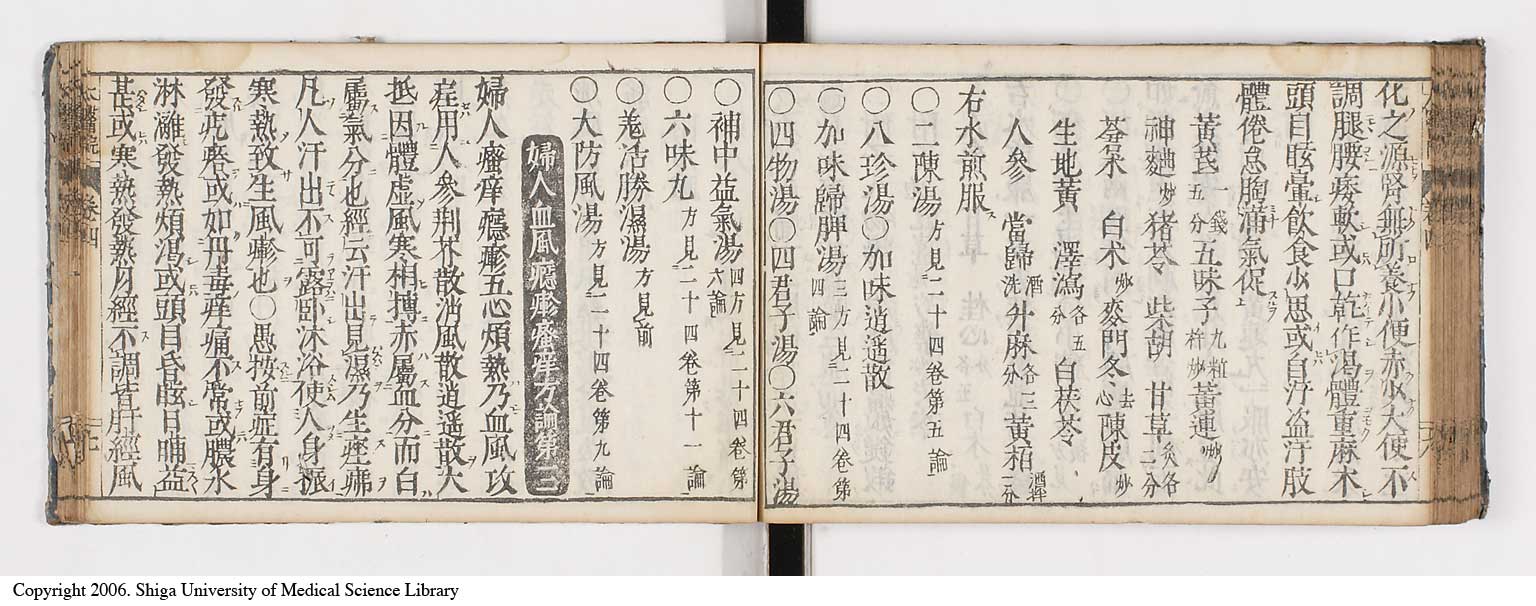 化之源腎無所養小便赤少大便不
調腿腰痿軟或口乾作渴體重麻木
頭目眩暈飲食少思或自汗盗汗肢
體倦怠胸滿氣促
黃芪一錢五分 五味子九粒杵炒 黃連炒
神麯炒 猪苓 柴胡 甘草炙各二分
荅朮 白朮炒 麥門冬去心 陳皮炒
生地黃 澤瀉各五分 白茯苓
人參 當歸酒洗 升麻各三分 黃栢酒拌二分
右水煎服
○二陳湯方見二十四卷第五論
○八珍湯○加味逍遥散
○加味歸脾湯三方見二十四卷第四論
○四物湯○四君子湯○六君子湯
○補中益氣湯四方見二十四卷第六論
○六味丸方見二十四卷第十一論
○羗活勝濕湯方見前
○大防風湯方見二十四卷第九論
婦人血風癮瘮瘙痒方論第三
婦人瘙痒癮瘮五心煩熱乃血風攻
痓用人參荆芥散消風散逍遥散大
抵因體虚風寒相搏赤屬血分而白
屬氣分也經云汗出見濕乃生痤疿
凡人汗出不可露卧沐浴使人身振
寒熱致生風瘮也○愚按前症有身
發疙瘩或如丹毒痒痛不常或膿水
淋漓發熱煩渴或頭目昏眩日晡益
甚或寒熱發熱月經不調皆肝經風
Copyright 2006. Shiga University of Medical Science Library